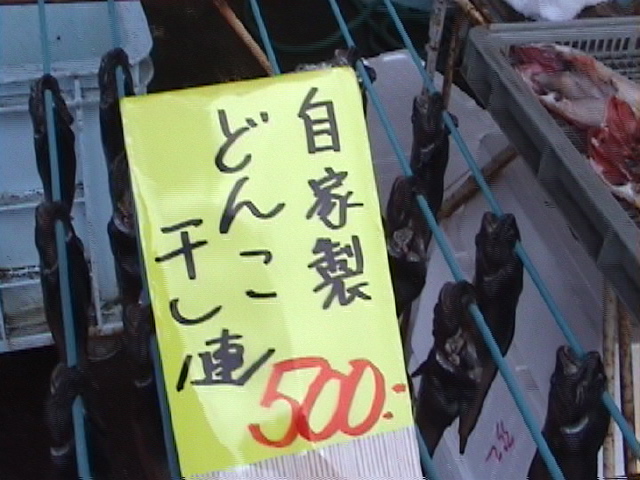 自家製
どんこ
干し
一連
500:-